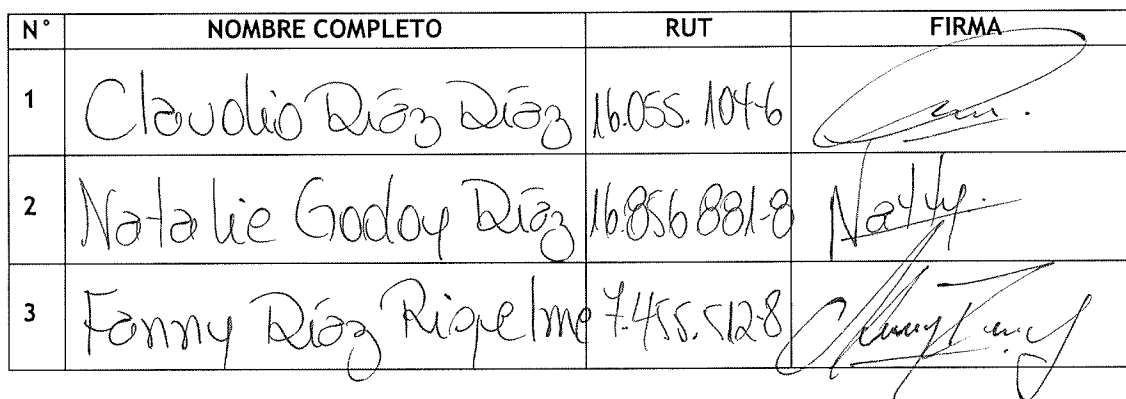 N° NOMBRE COMPLETO RUT FIRMA
1 Claudio Díaz Díaz 16.055.104-6
2 Natalie Godoy Díaz 16.856.881-8 Natty.
3 Fanny Díaz Riqelme 7.455.512-8